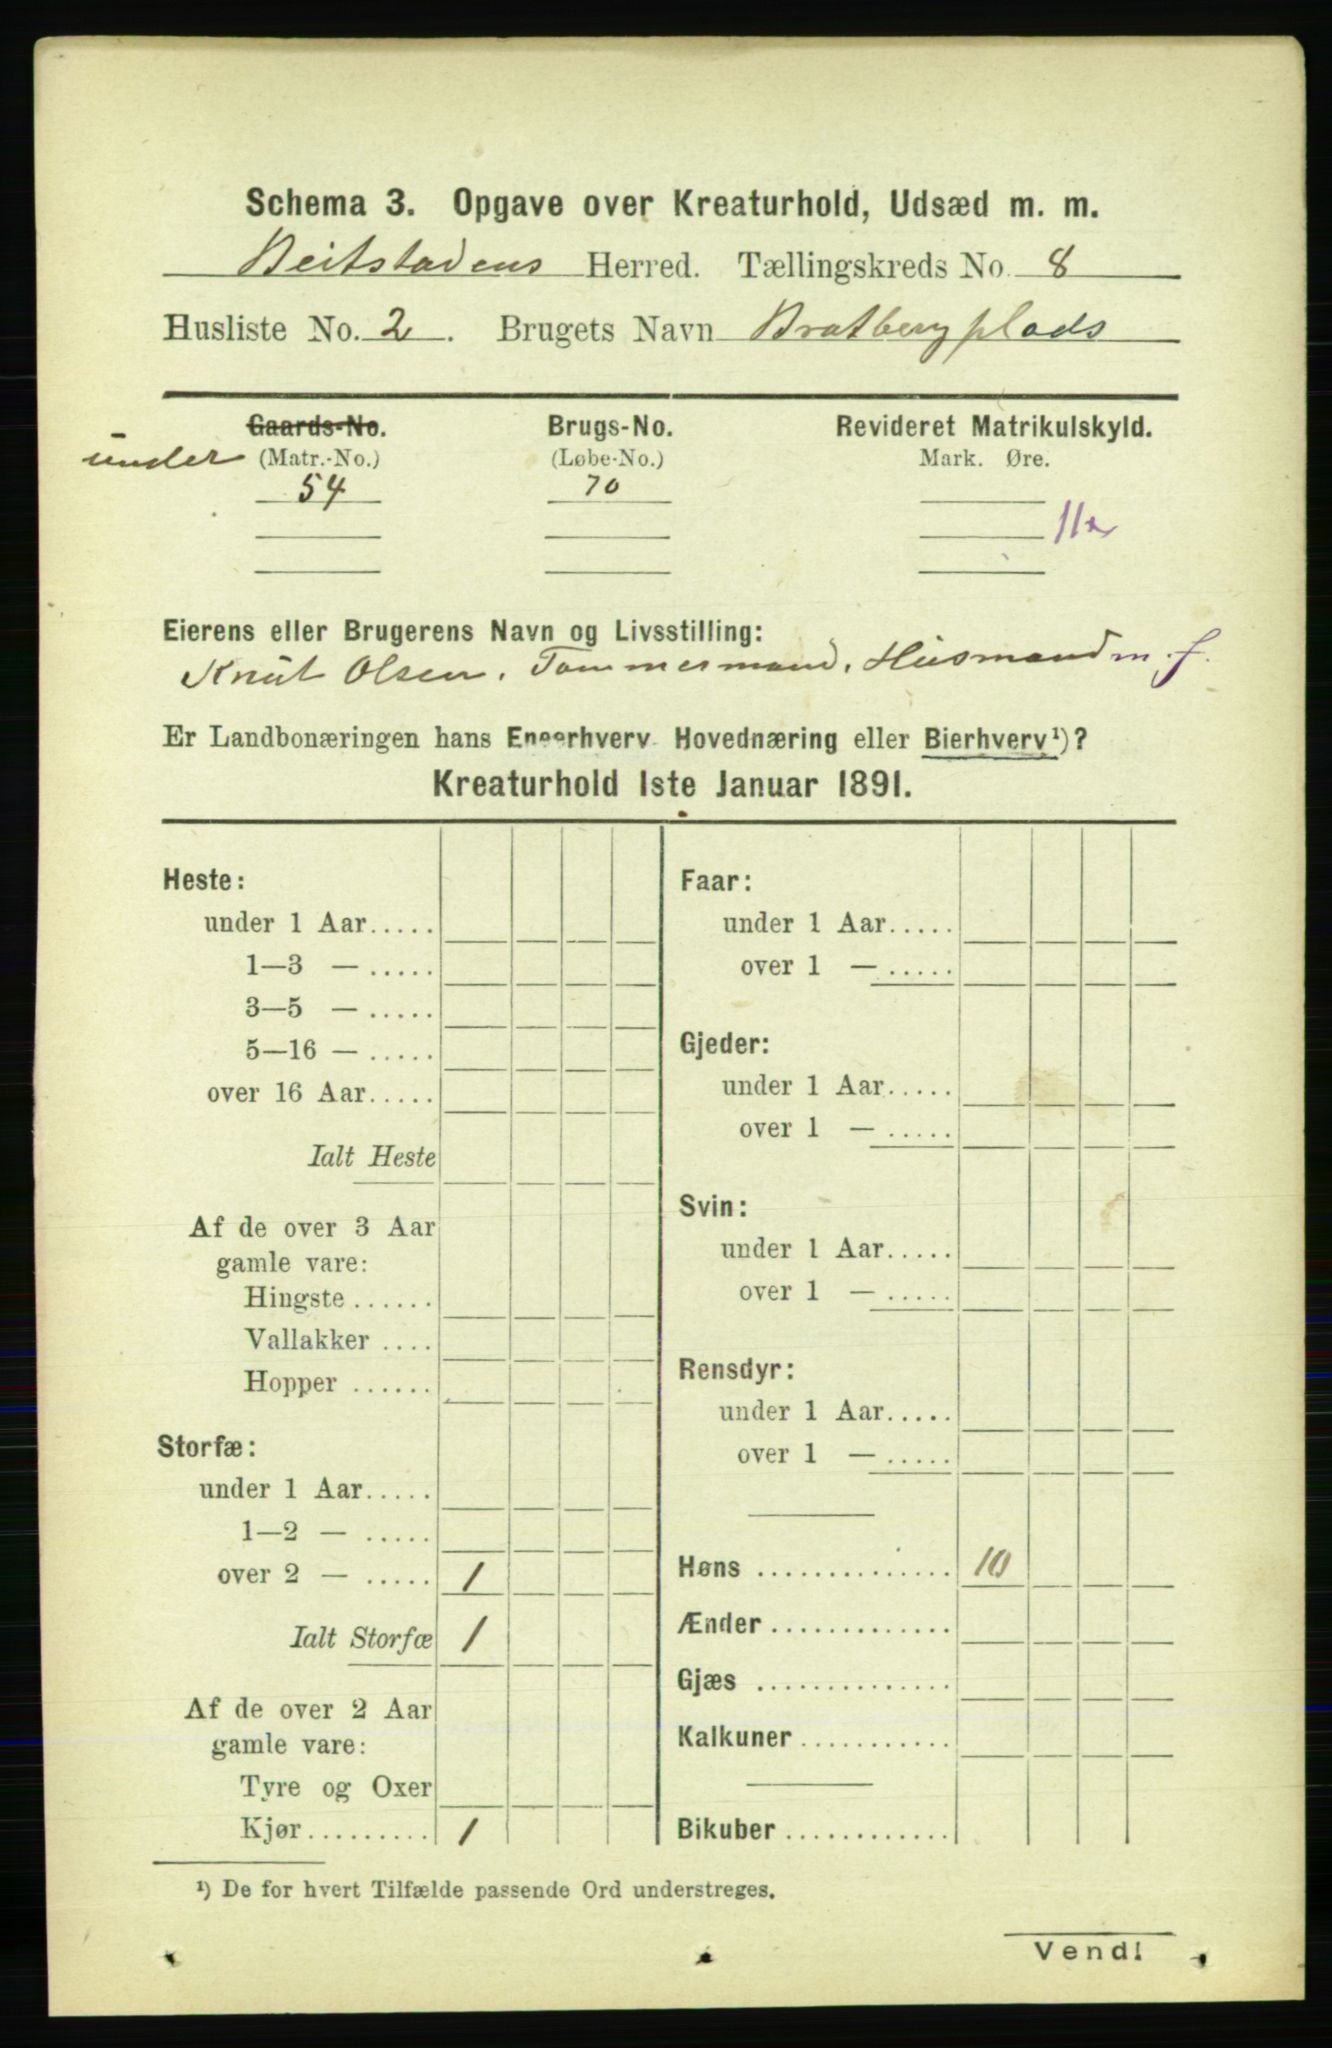 Schema 3. Opgave over Kreaturhold, Udsæd m. m.
Beitstadens Herred. Tællingskreds No. 8
Husliste No. 2. Brugets Navn Bratbergplads
Gaards-No. Brugs-No. Revideret Matrikulskyld.
under (Matr.-No.) (Løbe-No.) Mark. Øre.
54 70
Eierens eller Brugerens Navn og Livsstilling:
Knut Olsen, Tømmermand, Husmand m. f.
Er Landbonæringen hans Eneerhverv Hovednæring eller Bierhverv¹)?
Kreaturhold 1ste Januar 1891.
Heste:
under 1 Aar.....
1—3 — .....
3—5 — .....
5—16 — .....
over 16 Aar.....
Ialt Heste
Af de over 3 Aar
gamle vare:
Hingste ......
Vallakker ....
Hopper ......
Storfæ:
under 1 Aar.....
1—2 — .....
over 2 — ..... 1
Ialt Storfæ 1
Af de over 2 Aar
gamle vare:
Tyre og Oxer
Kjør......... 1
Faar:
under 1 Aar.....
over 1 — .....
Gjeder:
under 1 Aar.....
over 1 — .....
Svin:
under 1 Aar.....
over 1 — .....
Rensdyr:
under 1 Aar.....
over 1 — .....
Høns .............. 10
Ænder .............
Gjæs ..............
Kalkuner ...........
Bikuber ............
¹) De for hvert Tilfælde passende Ord understreges.
Vend!